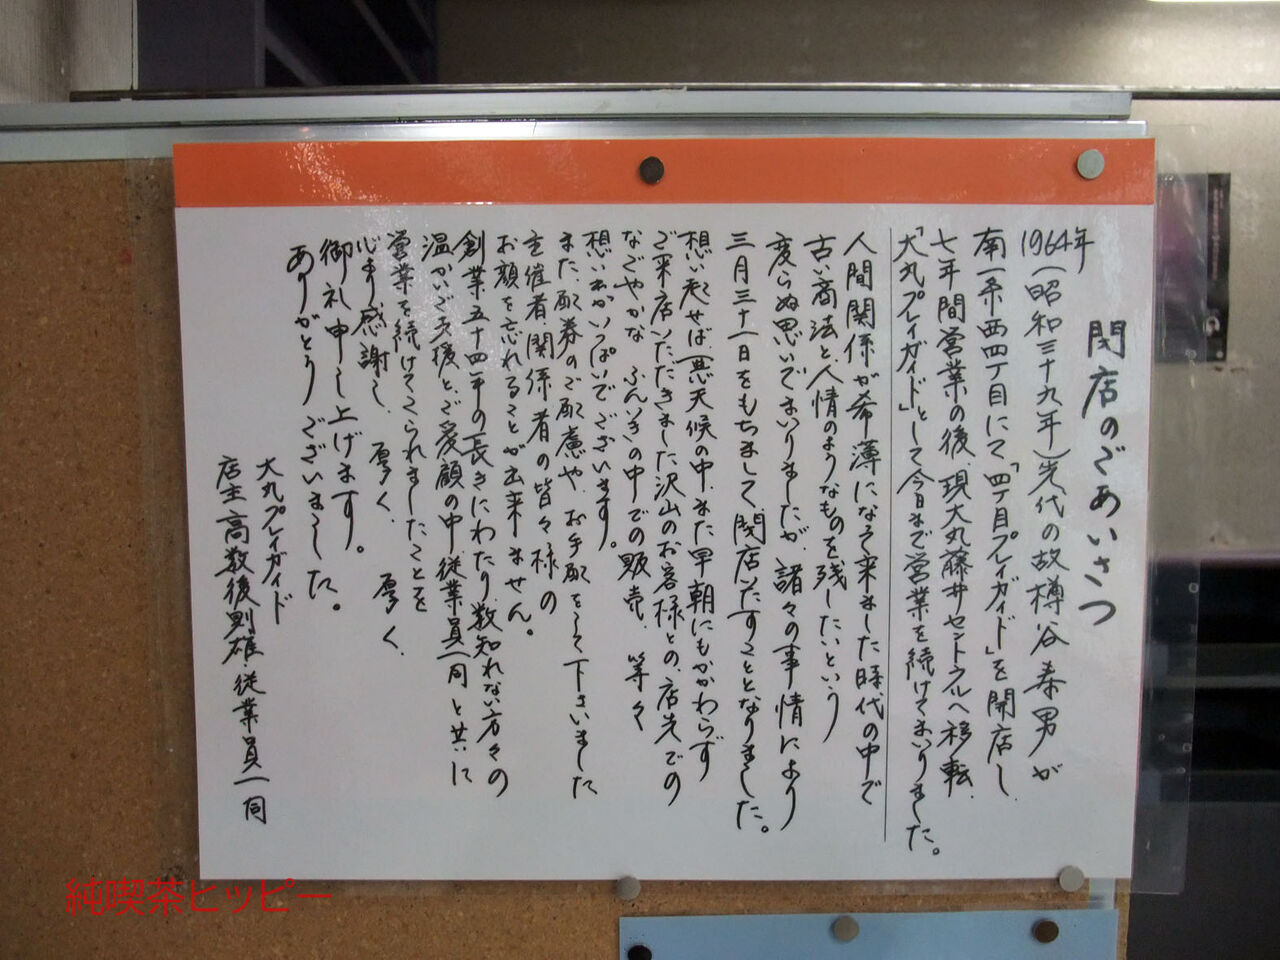 閉店のごあいさつ
1964年(昭和三十九年)先代の故樽谷泰男が
南一条西四丁目にて「四丁目プレイガイド」を開店し、
七年間営業の後、現大丸藤井セントラルへ移転、
「大丸プレイガイド」として今日まで営業を続けてまいりました。
人間関係が希薄になって来ました時代の中で
古い商法と、人情のようなものを残したいという
変らぬ思いでまいりましたが、諸々の事情により
三月三十一日をもちまして、閉店いたすこととなりました。
想い起せば、悪天候の中、また早朝にもかかわらず
ご来店いただきました沢山のお客様との、店先での
なごやかな ふんいきの中での販売、等々
想いねがいっぱいでございます。
また、配券のご配慮や、お手配をして下さいました
主催者、関係者の皆々様の
お顔を忘れることが出来ません。
創業五十四年の長きにわたり、数知れない方々の
温かいご支援と、ご愛顧の中、従業員一同と共に
営業を続けてこられましたことを
心より感謝し、厚く、厚く、
御礼申し上げます。
ありがとうございました。
大丸プレイガイド
店主 高数後則雄・従業員一同
純喫茶ヒッピー